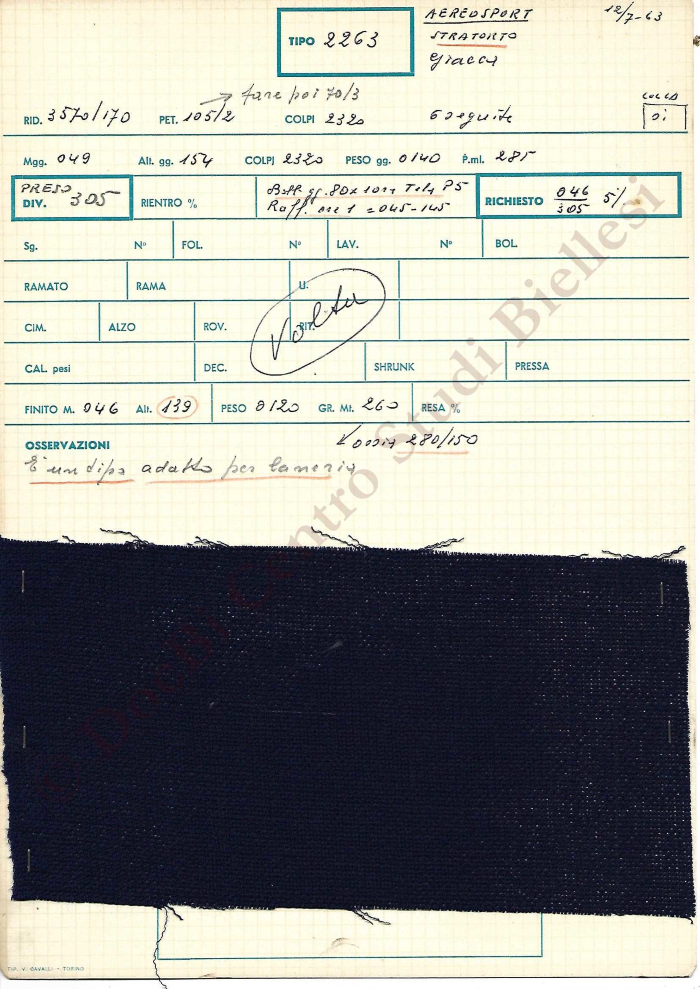 AEREOSPORT 12/7-63
TIPO 2263 STRATORTO
Giacca
→ fare poi 70/3
RID. 3570/170 PET. 105/2 COLPI 2320 Eseguite si
Mgg. 049 Alt. gg. 154 COLPI 2320 PESO gg. 0140 P.ml. 285
PRESO
DIV. 305 RIENTRO % RICHIESTO 046/305 5%
Sg. N° FOL. N° LAV. N° BOL.
RAMATO RAMA U.
Volta
CIM. ALZO ROV. RIT.
CAL. pesi DEC. SHRUNK PRESSA
FINITO M. 046 Alt. 139 PESO 0120 GR. Mt. 260 RESA %
OSSERVAZIONI ossia 280/150
E' un tipo adatto per laneria
© DocBi Centro Studi Biellesi
TIP. V. CAVALLI - TORINO